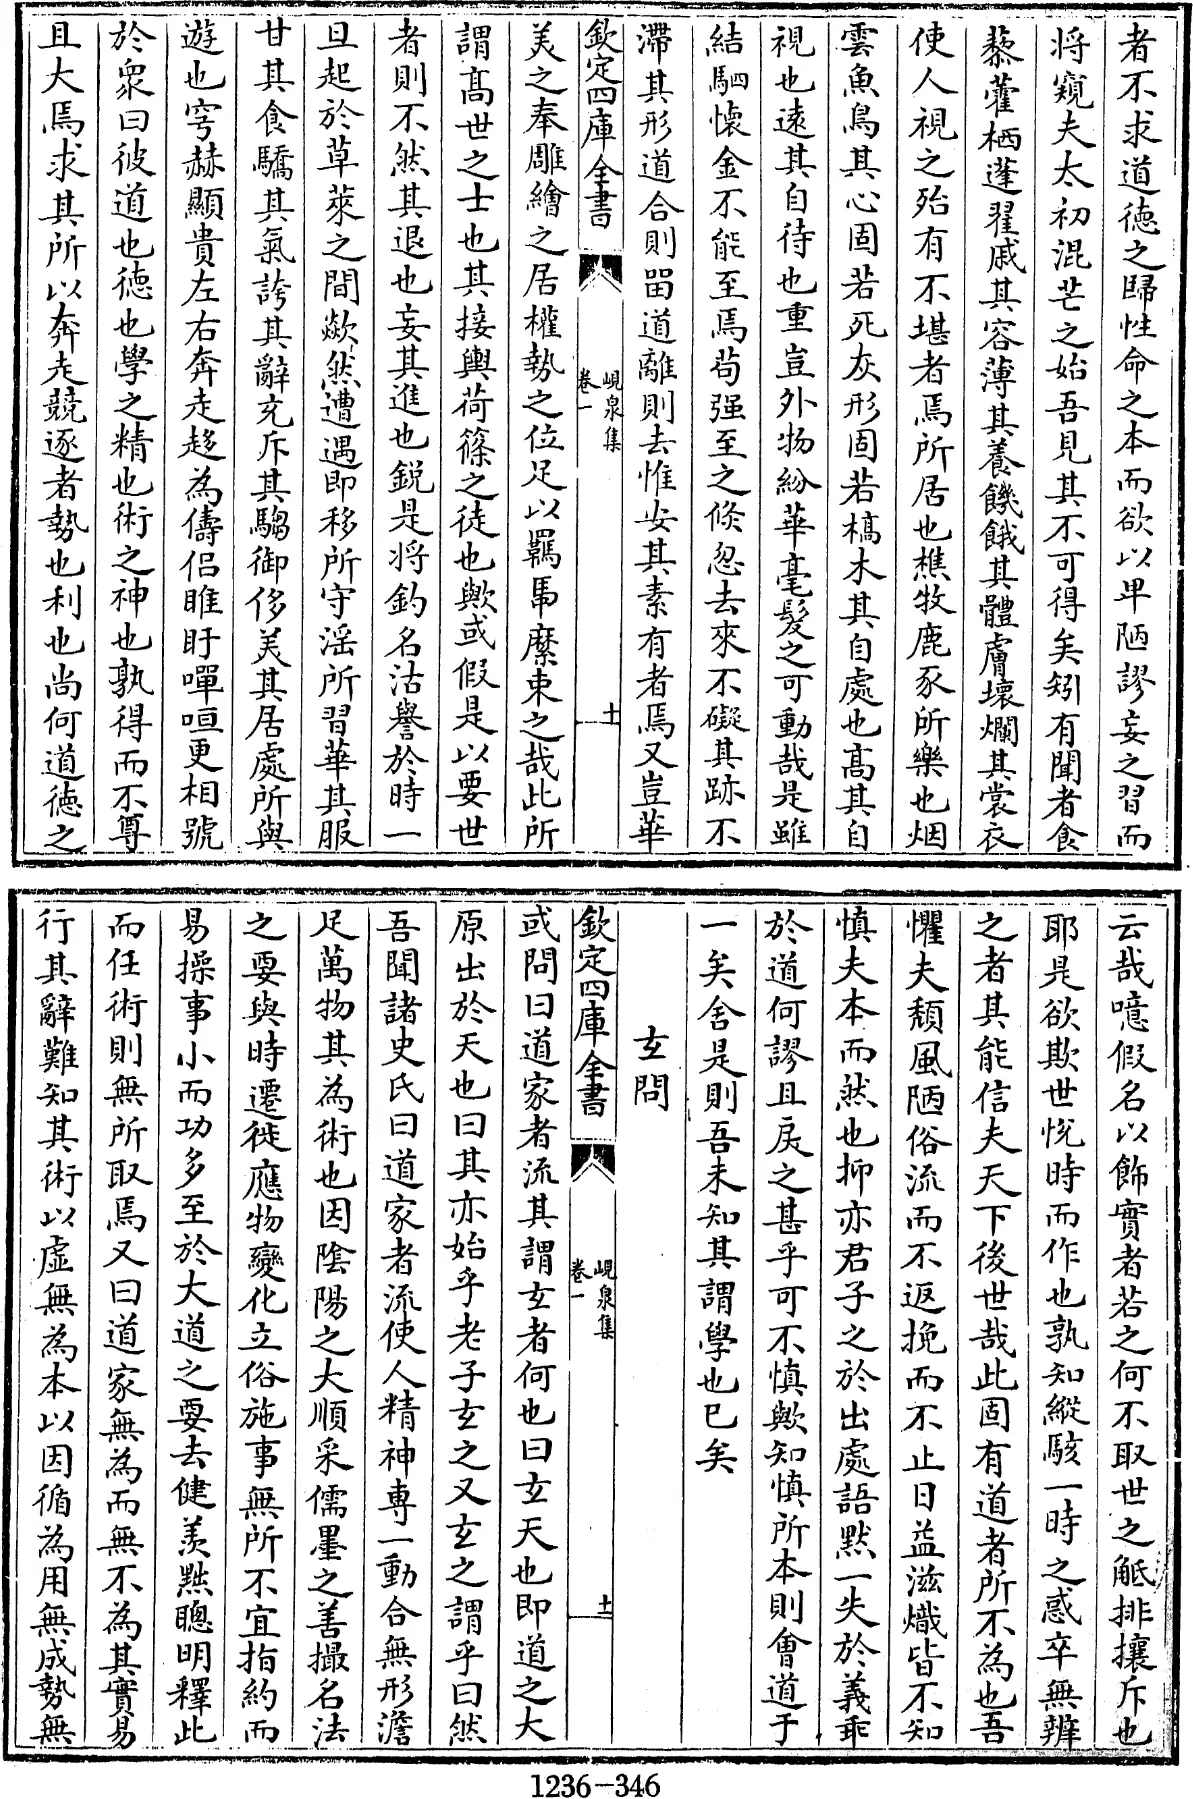 者不求道德之歸性命之本而欲以卑陋謬妄之習而
將窺夫太初混芒之始吾見其不可得矣矧有聞者食
藜藿栖蓬翟戚其容薄其養饑餓其體膚壞爛其裳衣
使人視之殆有不堪者焉所居也樵牧鹿豕所樂也烟
雲魚鳥其心固若死灰形固若槁木其自處也髙其自
視也遠其自待也重豈外物紛華毫髮之可動哉是雖
結駟懷金不能至焉茍强至之倏忽去來不礙其跡不
滯其形道合則留道離則去惟安其素有者焉又豈華
欽定四庫全書
峴泉集
卷一
十
美之奉雕繪之居權勢之位足以羈馽縻束之哉此所
謂髙世之士也其接輿荷篠之徒也歟或假是以要世
者則不然其退也妄其進也鋭是将釣名沽譽於時一
旦起於草萊之間歘然遭遇即移所守滛所習華其服
甘其食驕其氣誇其辭充斥其騶御侈美其居處所與
遊也穹赫顯貴左右奔走趍為儔侣睢盱嘽咺更相號
於衆曰彼道也德也學之精也術之神也孰得而不尊
且大焉求其所以奔走競逐者勢也利也尚何道德之
云哉噫假名以飾實者若之何不取世之觝排攘斥也
耶是欲欺世悦時而作也孰知縱駭一時之惑卒無辨
之者其能信夫天下後世哉此固有道者所不為也吾
懼夫頽風陋俗流而不返挽而不止日益滋熾皆不知
慎夫本而然也抑亦君子之於出處語黙一失於義乖
於道何謬且戾之甚乎可不慎歟知慎所本則㑹道于
一矣舍是則吾未知其謂學也已矣
𤣥問
欽定四庫全書
峴泉集
卷一
十一
或問曰道家者流其謂𤣥者何也曰𤣥天也即道之大
原出於天也曰其亦始乎老子𤣥之又𤣥之謂乎曰然
吾聞諸史氏曰道家者流使人精神専一動合無形澹
足萬物其為術也因隂陽之大順采儒墨之善撮名法
之要與時遷徙應物變化立俗施事無所不宜指約而
易操事小而功多至於大道之要去健羡黜聰明釋此
而任術則無所取焉又曰道家無為而無不為其實易
行其辭難知其術以虚無為本以因循為用無成勢無
1236-346